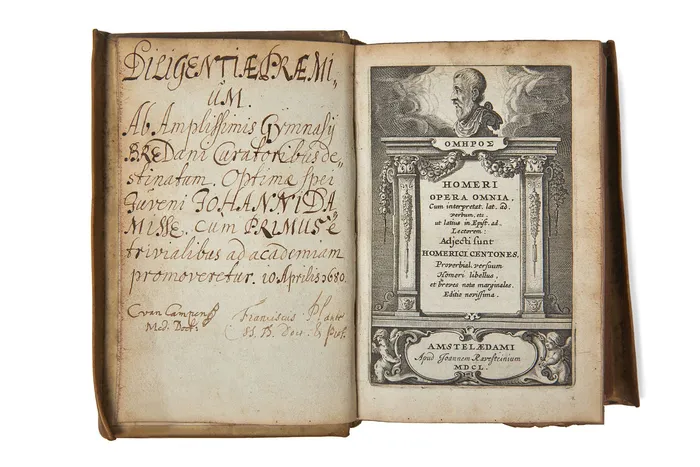 DILIGENTIÆ PRÆMI,
UM.
Ab Amplissimis Gymnasij
BREDani Curatoribus de,
stinatum. Optimæ spei
Iuveni JOHANNI DA
MISSE. cum PRIMUS è
trivialibus ad academiam
promoveretur. 10 Aprilis 1680.
C van Campen
Med: Doct:
Franciscus Plante
SS. Th. Doct. & Prof.
ΟΜΗΡΟΣ
HOMERI
OPERA OMNIA.
Cum interpretat. lat. ad
verbum, etc.
ut latius in Epist. ad
Lectorem:
Adjecti sunt
HOMERICI CENTONES,
Proverbial. versuum
Homeri libellus,
et breves notæ marginales.
Editio novissima.
AMSTELÆDAMI
Apud Joannem Ravesteinium
MDCL.